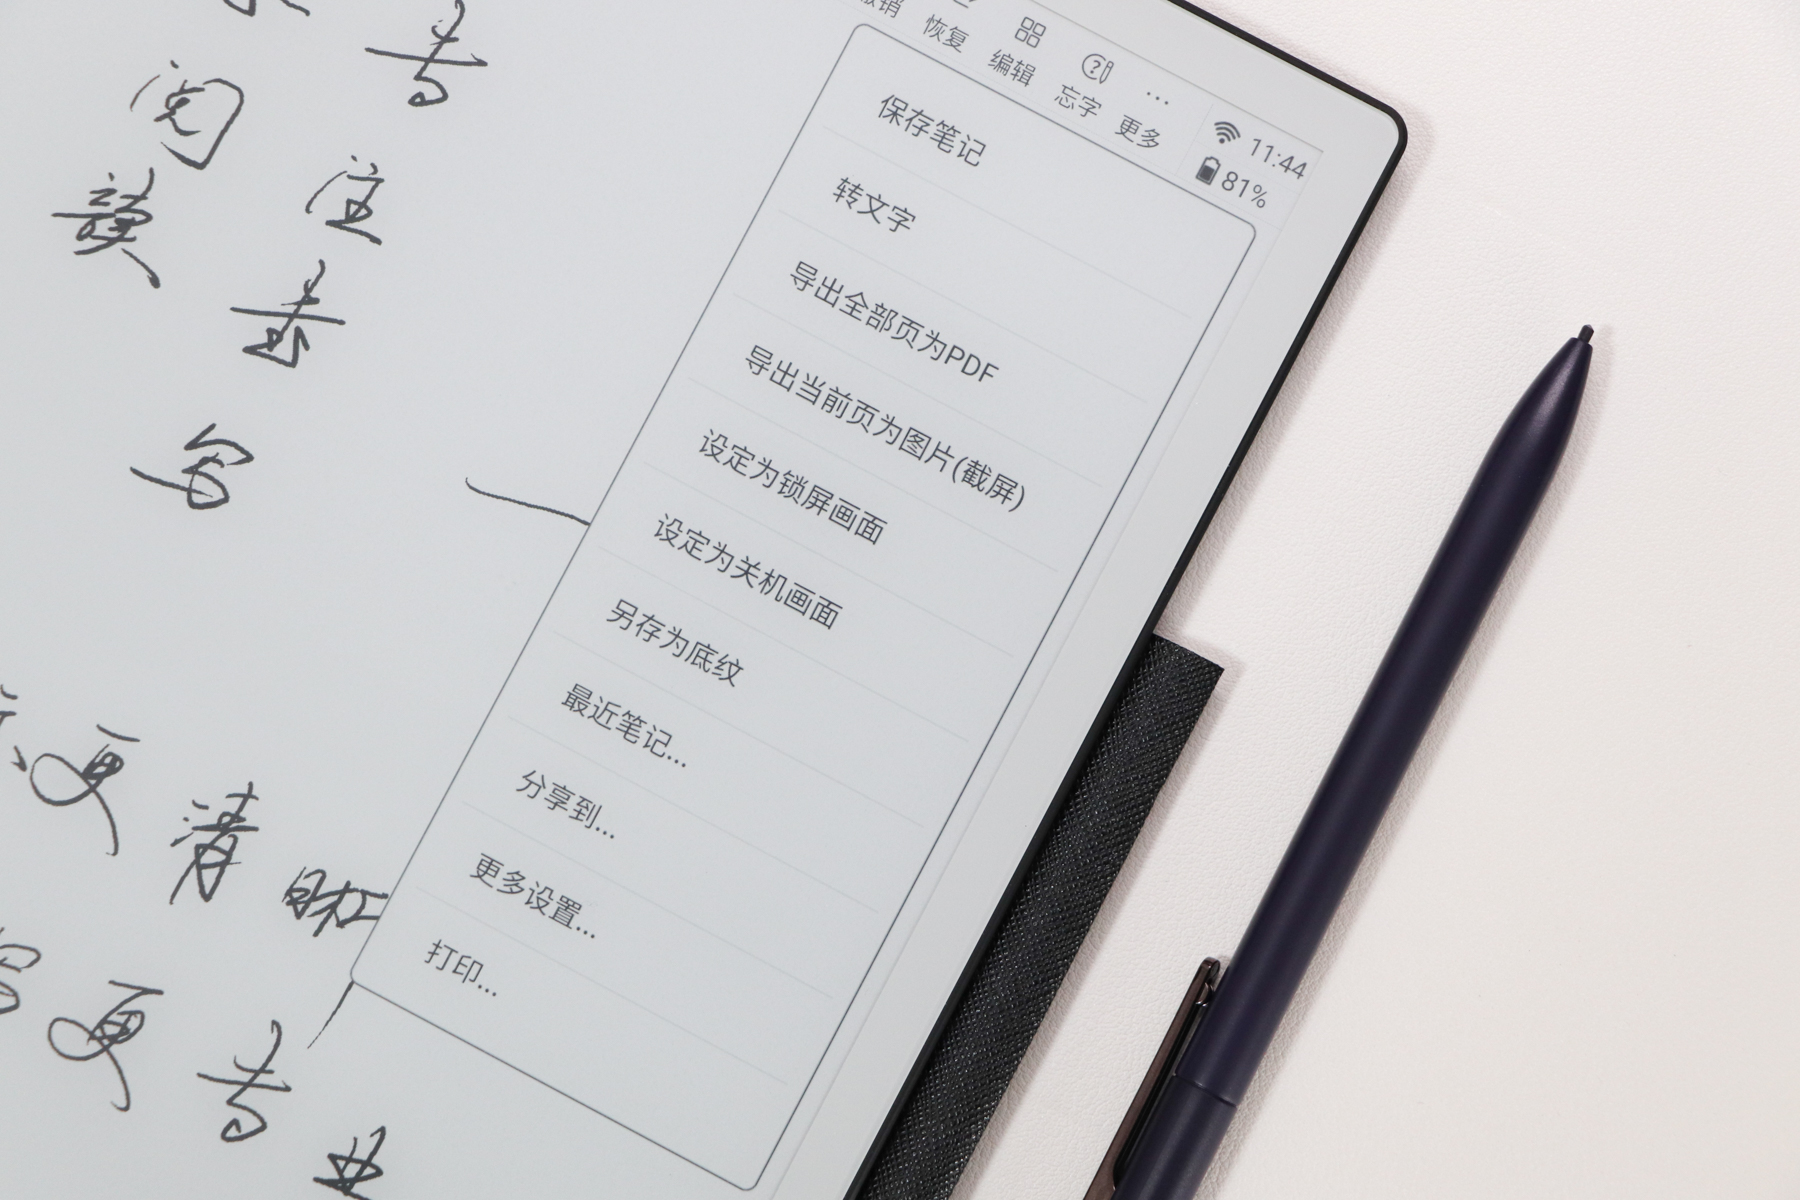 恢复 编辑 忘字 更多
11:44
81%
保存笔记
转文字
导出全部页为PDF
导出当前页为图片(截屏)
设定为锁屏画面
设定为关机画面
另存为底纹
最近笔记...
分享到...
更多设置...
打印...
专
阅
读
注
写
更清晰
更专业